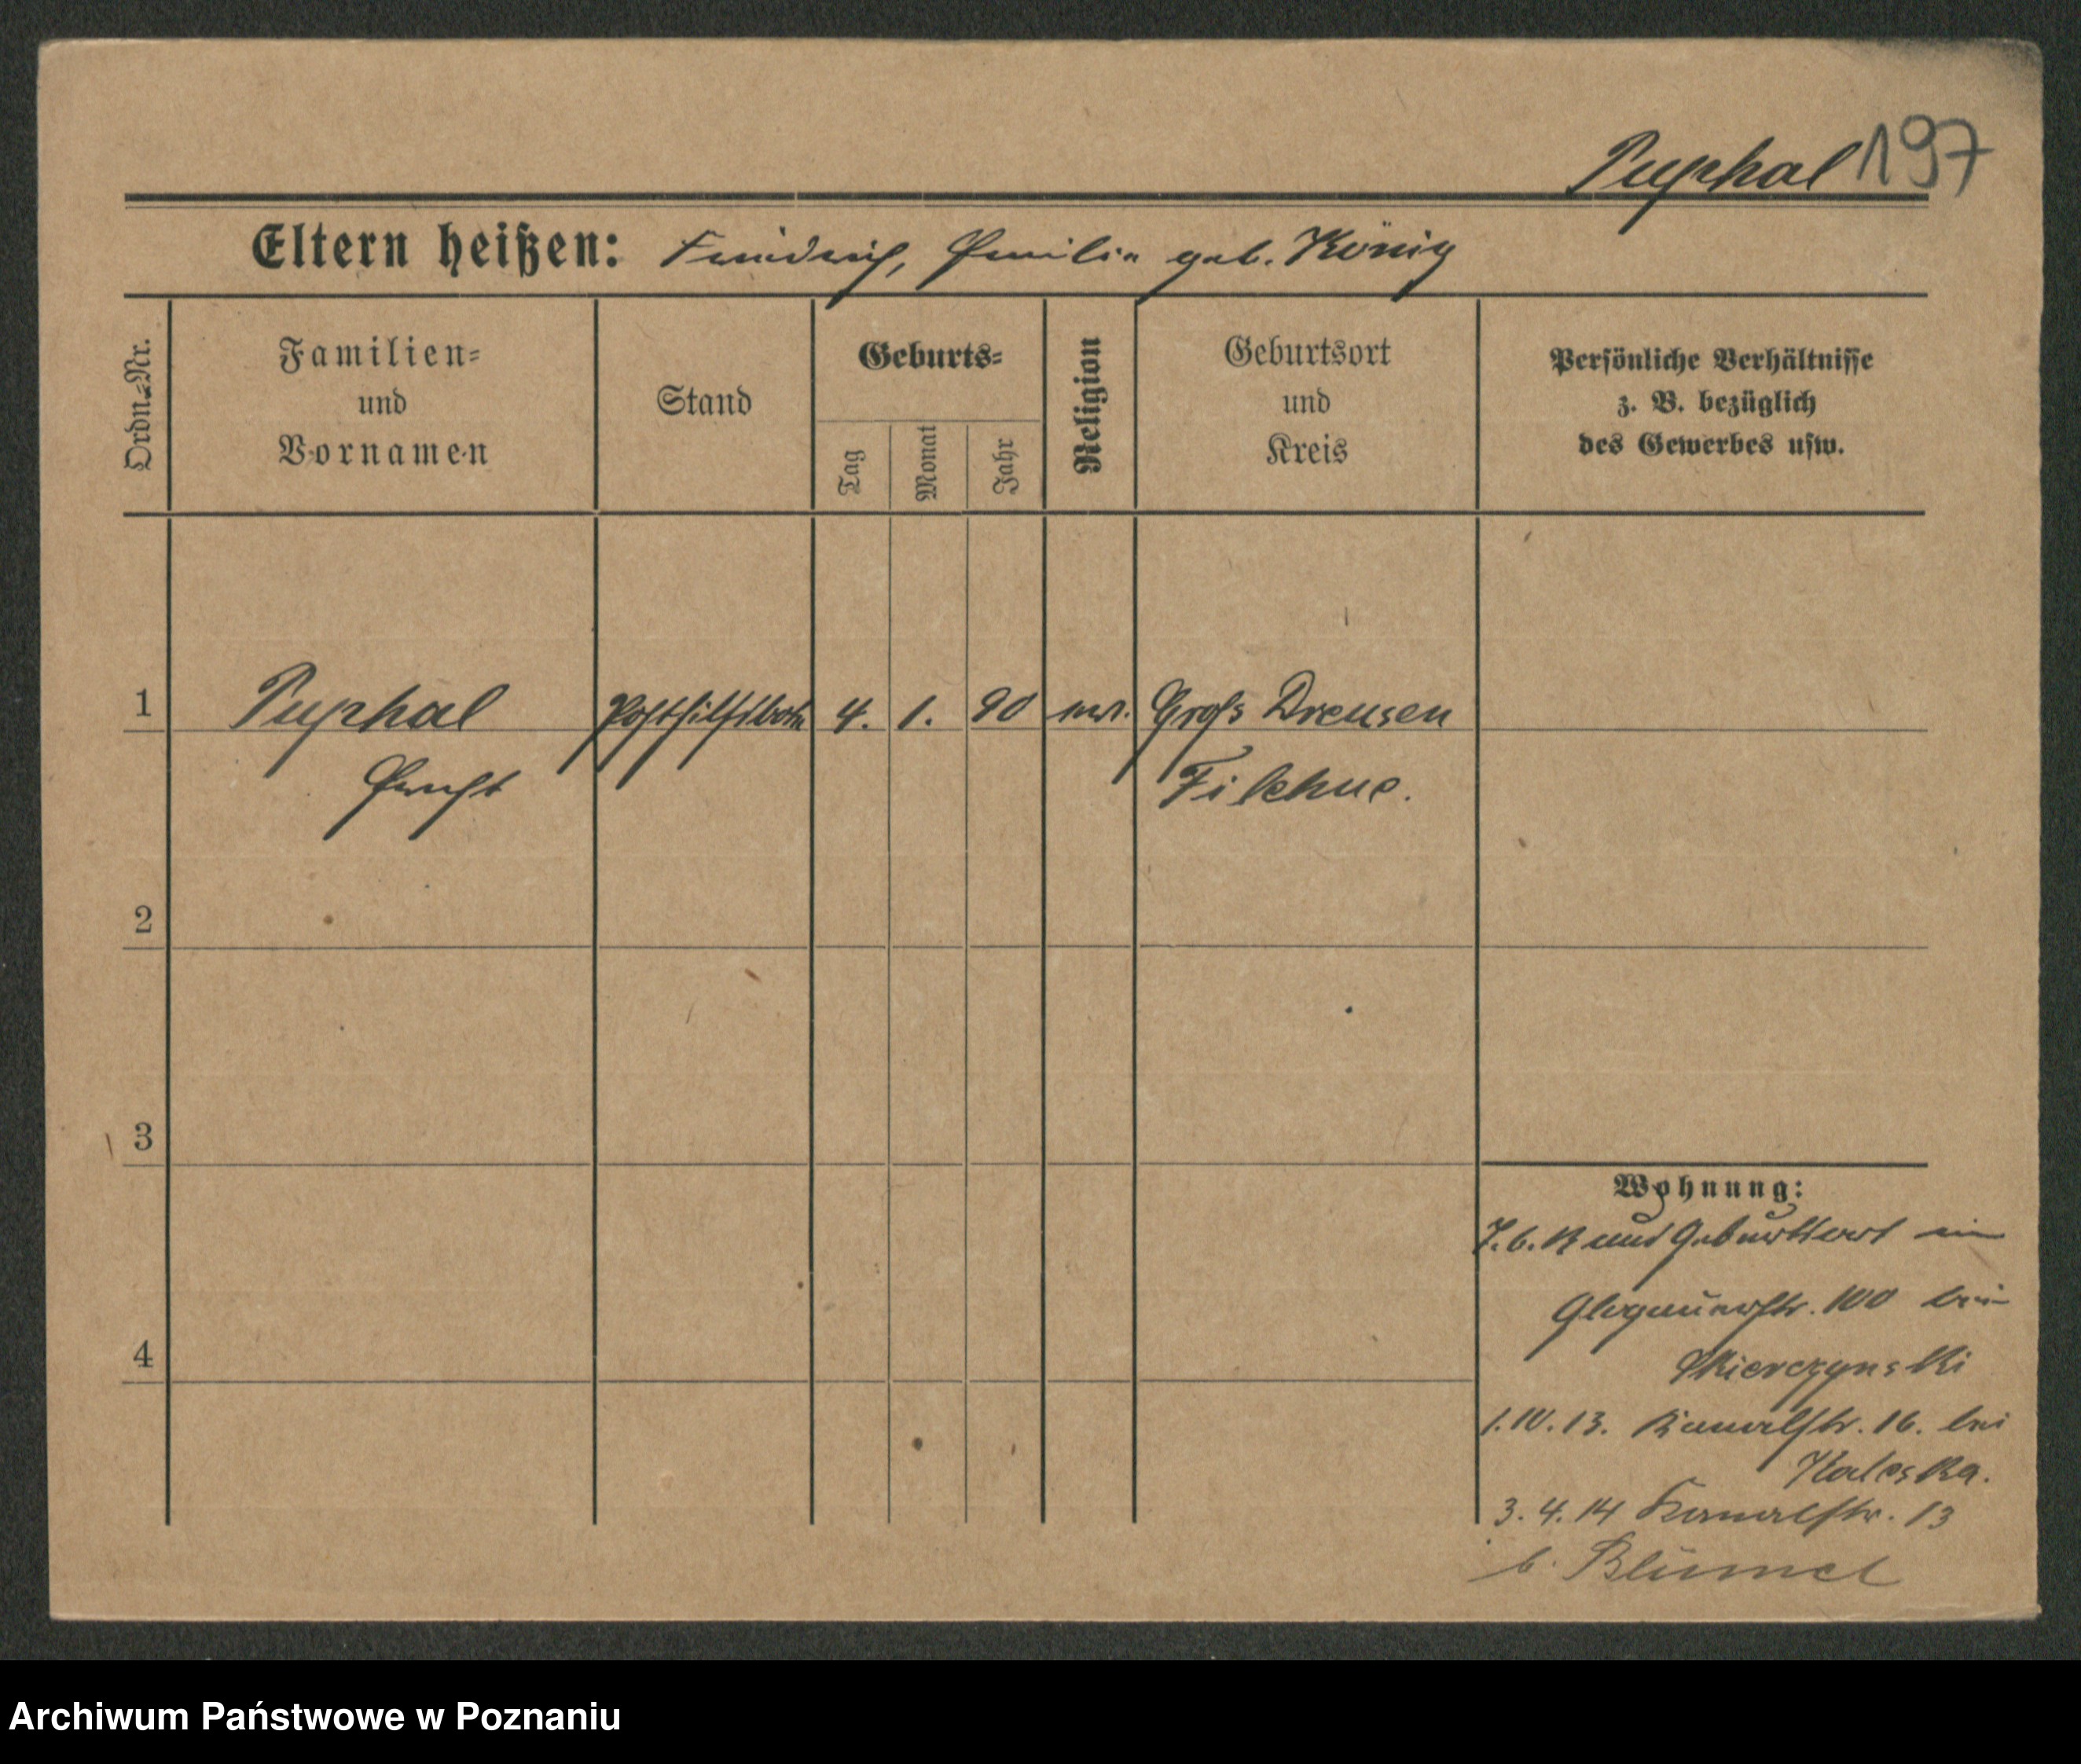 Puphal 197
Eltern heißen: Friedrich, Emilie geb. König
Ordn.-Nr.
Familien-
und
Vornamen
Stand
Geburts-
Tag
Monat
Jahr
Religion
Geburtsort
und
Kreis
Persönliche Verhältnisse
z. B. bezüglich
des Gewerbes usw.
1 Puphal Posthilfsbote 4. 1. 90 ev. Groß Drensen
Ernst Filehne.
2
3
4
Wohnung:
und Geburtsort
Glogauerstr. 100 bei
Skierczynski
1.10.13. Kanalstr. 16. bei
Kaleska.
3.4.14 Kanalstr. 13
b. Blümel
Archiwum Państwowe w Poznaniu